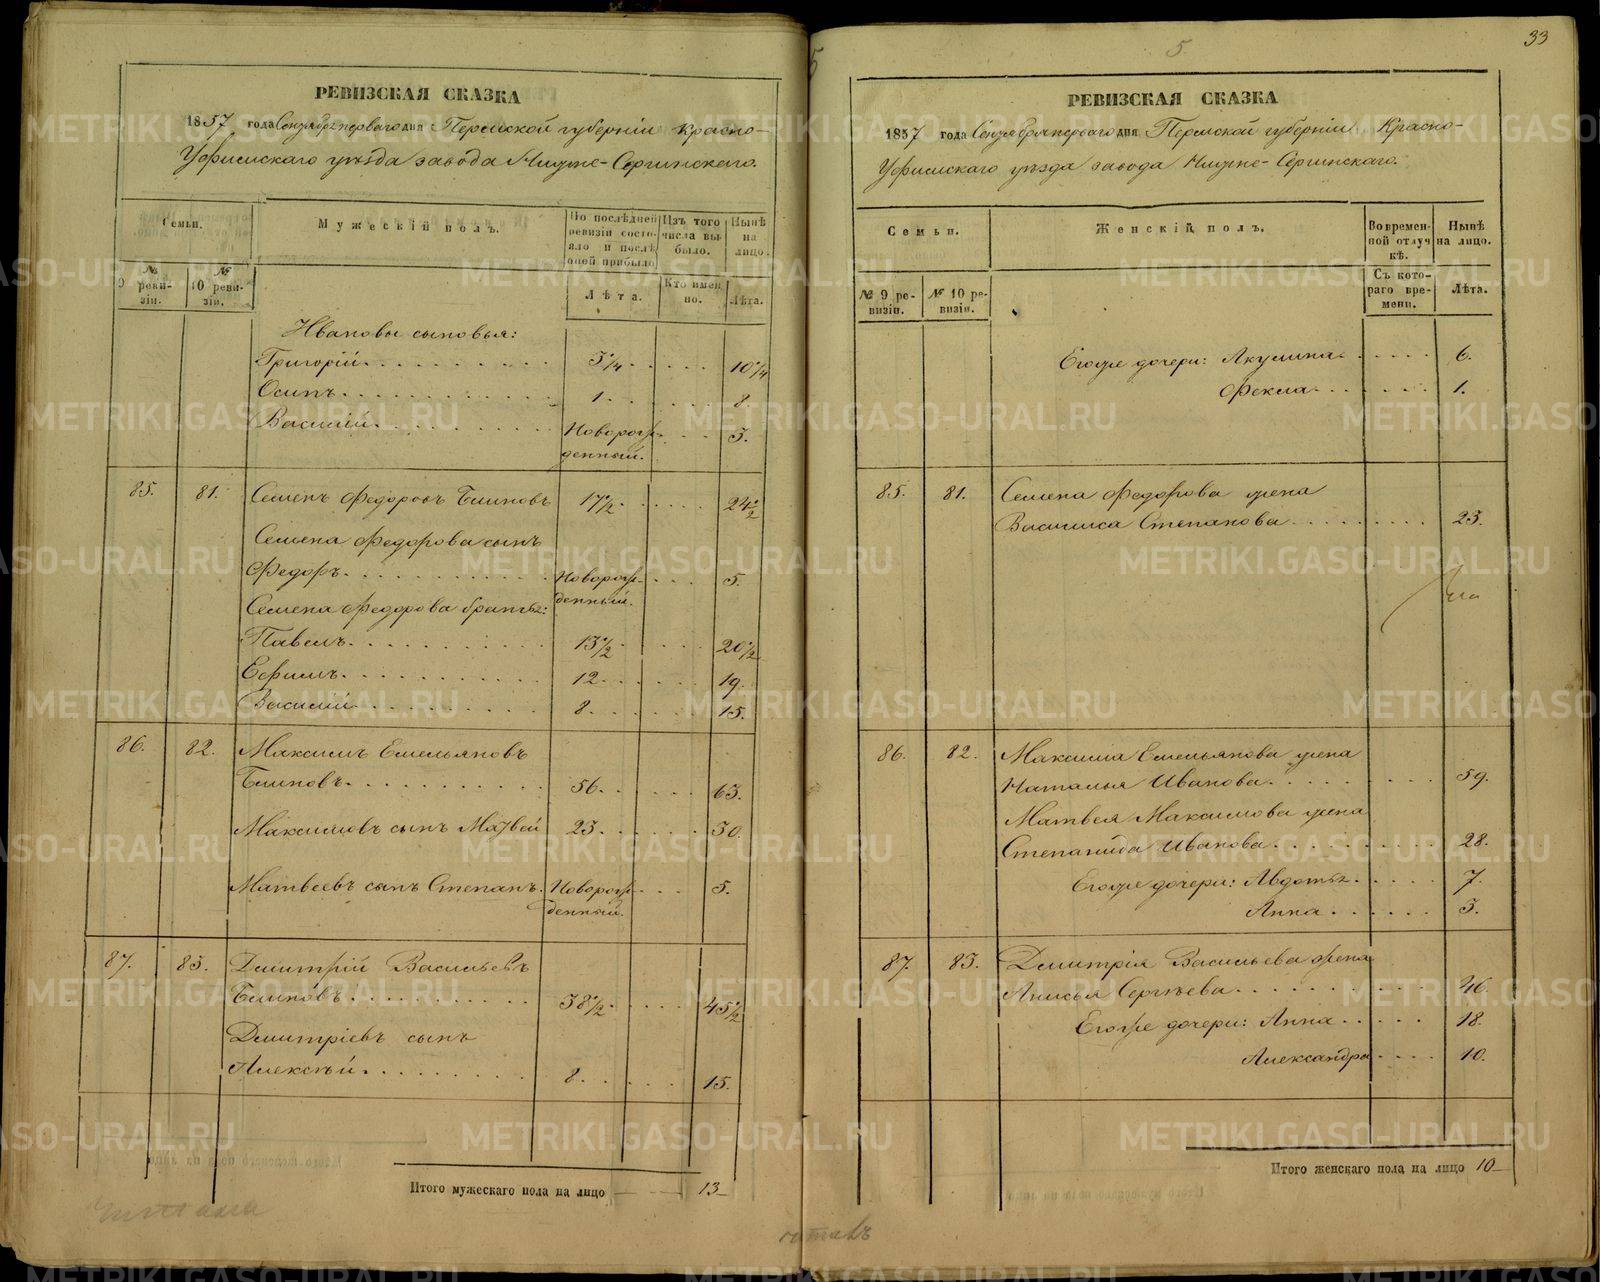 РЕВИЗСКАЯ СКАЗКА
1857 года Сентября перваго дня Пермской губерніи Красно-
Уфимскаго уѣзда завода Нижне-Сергинскаго.
Семьи.
Мужескій полъ.
По послѣдней ревизіи состояло и послѣ оней прибыло
Изъ того числа выбыло.
Нынѣ на лицо.
№ 9 ревизіи.
№ 10 ревизіи.
Лѣта.
Кто именно.
Лѣта.
Ивановы сыновья:
Григорій 3 1/4 10 1/4
Осипъ 1 8
Василій Новорож- 5.
денный.
85. 81. Семенъ Федоровъ Блиновъ 17 1/2 24 1/2
Семена Федорова сынъ
Федоръ Новорож- 5.
денный.
Семена Федорова братья:
Павелъ 13 1/2 20 1/2
Ефимъ 12 19.
Василій 8 15.
86. 82. Максимъ Емельяновъ
Блиновъ 56. 63.
Максимовъ сынъ Матвей 23 30.
Матвеевъ сынъ Степанъ Новорож- 5.
денный.
87. 83. Дмитрій Васильевъ
Блиновъ 38 1/2 45 1/2
Дмитріевъ сынъ
Алексѣй 8 15.
Итого мужескаго пола на лицо 13
5
33
РЕВИЗСКАЯ СКАЗКА
1857 года Сентября перваго дня Пермской губерніи Красно-
Уфимскаго уѣзда завода Нижне-Сергинскаго.
Семьи.
Женскій полъ.
Во временной отлучкѣ.
Нынѣ на лицо.
№ 9 ревизіи.
№ 10 ревизіи.
Съ котораго времени.
Лѣта.
Егоже дочери: Акулина 6.
Фекла 1.
85. 81. Семена Федорова жена
Василиса Степанова 23.
86. 82. Максима Емельянова жена
Наталья Иванова 59.
Матвея Максимова жена
Степанида Иванова 28.
Егоже дочери: Авдотья 7.
Анна 3.
87. 83. Дмитрія Васильева жена
Анисья Сергѣева 46.
Егоже дочери: Анна 18.
Александра 10.
Итого женскаго пола на лицо 10
METRIKI.GASO-URAL.RU